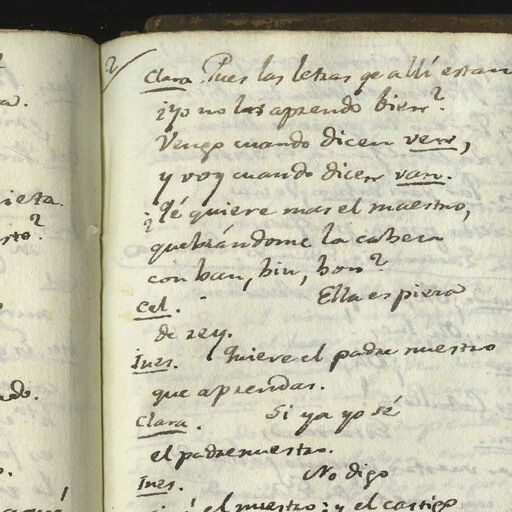 2
Clara. Pues las letras qe allí estan
¿yo no las aprendo bien?
Vengo cuando dicen ven,
y voy cuando dicen van.
¿qé quiere mas el maestro,
quebrándome la cabeza
con ban, bin, bon?
Cel. Ella es pieza
de rey.
Ines. Quiere el padre nuestro
que aprendas.
Clara. Si ya yo sé
el padrenuestro.
Ines. No digo
el nuestro; y el castigo